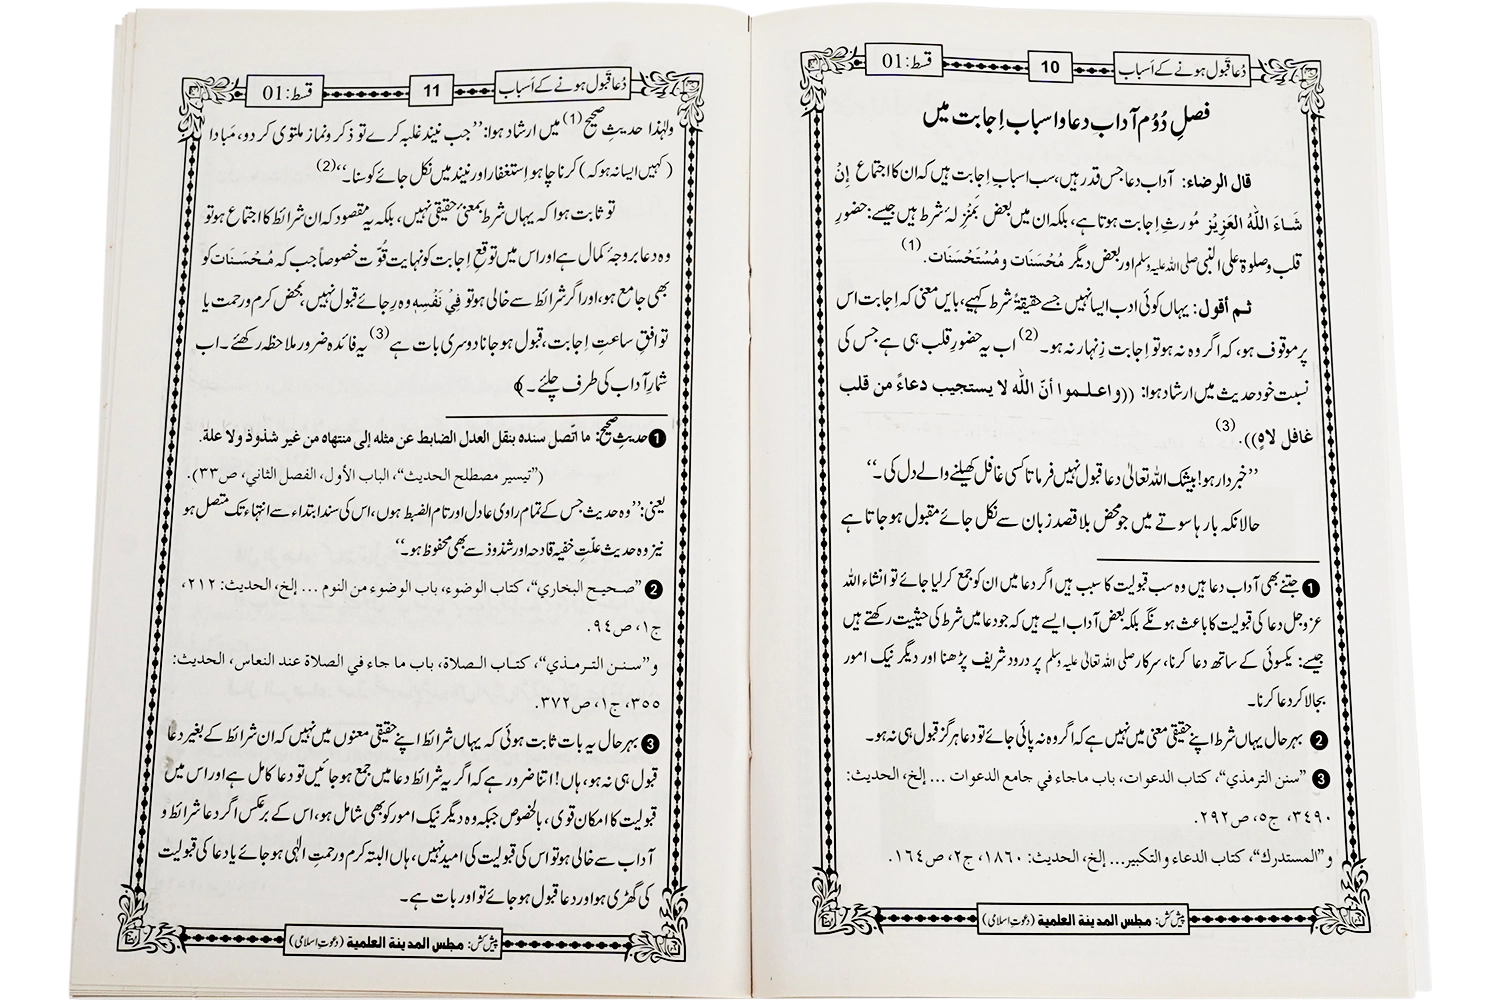 دُعا قبول ہونے کے اَسباب
10
قسط: 01
فصلِ دُوُم آدابِ دعا و اسبابِ اِجابت میں
قال الرضاء: آدابِ دعا جس قدر ہیں، سب اسبابِ اِجابت ہیں کہ ان کا اجتماع إِنْ
شَاءَ اللهُ العَزِيْز مُورثِ اِجابت ہوتا ہے، بلکہ ان میں بعض بَمنزِلۂ شرط ہیں جیسے: حضورِ
قلب وصلوۃ علی النبی صلی اللہ علیہ وسلم اور بعض دیگر مُحْسَنَات و مُسْتَحْسَنَات. (1)
ثم أقول: یہاں کوئی ادب ایسا نہیں جسے حقیقۃً شرط کہیے، بایں معنی کہ اِجابت اس
پر موقوف ہو، کہ اگر وہ نہ ہو تو اِجابت زِنہار نہ ہو۔ (2) اب یہ حضورِ قلب ہی ہے جس کی
نسبت خود حدیث میں ارشاد ہوا: ((واعلموا أنّ الله لا يستجيب دعاءً من قلب
غافل لاهٍ)). (3)
’’خبردار ہو! بیشک اللہ تعالیٰ دعا قبول نہیں فرماتا کسی غافل کھیلنے والے دل کی۔‘‘
حالانکہ بارہا سوتے میں جو محض بلا قصد زبان سے نکل جائے مقبول ہو جاتا ہے
1 جتنے بھی آداب دعا ہیں وہ سب قبولیت کا سبب ہیں اگر دعا میں ان کو جمع کر لیا جائے تو انشاء اللہ
عزوجل دعا کی قبولیت کا باعث ہونگے بلکہ بعض آداب ایسے ہیں کہ جو دعا میں شرط کی حیثیت رکھتے ہیں
جیسے: یکسوئی کے ساتھ دعا کرنا، سرکار صلی اللہ تعالیٰ علیہ وسلم پر درود شریف پڑھنا اور دیگر نیک امور
بجا لا کر دعا کرنا۔
2 بہر حال یہاں شرط اپنے حقیقی معنی میں نہیں ہے کہ اگر وہ نہ پائی جائے تو دعا ہرگز قبول ہی نہ ہو۔
3 ”سنن الترمذي“، كتاب الدعوات، باب ماجاء في جامع الدعوات ... إلخ، الحديث:
٣٤٩٠، ج٥، ص٢٩٢.
و”المستدرك“، كتاب الدعاء والتكبير... إلخ، الحديث: ١٨٦٠، ج٢، ص١٦٤.
پیش کش: مجلس المدينة العلمية (دعوتِ اسلامی)
دُعا قبول ہونے کے اَسباب
11
قسط: 01
ولہٰذا حدیثِ صحیح (1) میں ارشاد ہوا: ’’جب نیند غلبہ کرے تو ذکر و نماز ملتوی کر دو، مَبادا
(کہیں ایسا نہ ہو کہ) کرنا چاہو اِستغفار اور نیند میں نکل جائے کوسنا۔‘‘ (2)
تو ثابت ہوا کہ یہاں شرط بمعنیٔ حقیقی نہیں، بلکہ یہ مقصود کہ ان شرائط کا اجتماع ہو تو
وہ دعا بر وجۂ کمال ہے اور اس میں توقعِ اِجابت کو نہایت قُوّت خصوصاً جب کہ مُحْسَنَات کو
بھی جامع ہو، اور اگر شرائط سے خالی ہو تو فِيْ نَفْسِهٖ وہ رِجائے قبول نہیں، بمحض کرم و رحمت یا
توافقِ ساعتِ اِجابت، قبول ہو جانا دوسری بات ہے (3) یہ فائدہ ضرور ملاحظہ رکھئے ۔ اب
شمارِ آداب کی طرف چلئے ۔ ﴾
1 حدیثِ صحیح: ما اتّصل سنده بنقل العدل الضابط عن مثله إلى منتهاه من غير شذوذ ولا علة.
(”تيسير مصطلح الحديث“، الباب الأول، الفصل الثاني، ص٣٣).
یعنی: ’’وہ حدیث جس کے تمام راوی عادل اور تام الضبط ہوں، اس کی سند ابتداء سے انتہاء تک متصل ہو
نیز وہ حدیث علّتِ خفیہ قادحہ اور شذوذ سے بھی محفوظ ہو۔‘‘
2 ”صحيح البخاري“، كتاب الوضوء، باب الوضوء من النوم ... إلخ، الحديث: ٢١٢،
ج١، ص٩٤.
و”سنن الترمذي“، كتاب الصلاة، باب ما جاء في الصلاة عند النعاس، الحديث:
٣٥٥، ج١، ص٣٧٢.
3 بہر حال یہ بات ثابت ہوئی کہ یہاں شرائط اپنے حقیقی معنوں میں نہیں کہ ان شرائط کے بغیر دعا
قبول ہی نہ ہو، ہاں! اتنا ضرور ہے کہ اگر یہ شرائط دعا میں جمع ہو جائیں تو دعا کامل ہے اور اس میں
قبولیت کا امکان قوی، بالخصوص جبکہ وہ دیگر نیک امور کو بھی شامل ہو، اس کے برعکس اگر دعا شرائط و
آداب سے خالی ہو تو اس کی قبولیت کی امید نہیں، ہاں البتہ کرم و رحمتِ الٰہی ہو جائے یا دعا کی قبولیت
کی گھڑی ہو اور دعا قبول ہو جائے تو اور بات ہے ۔
پیش کش: مجلس المدينة العلمية (دعوتِ اسلامی)